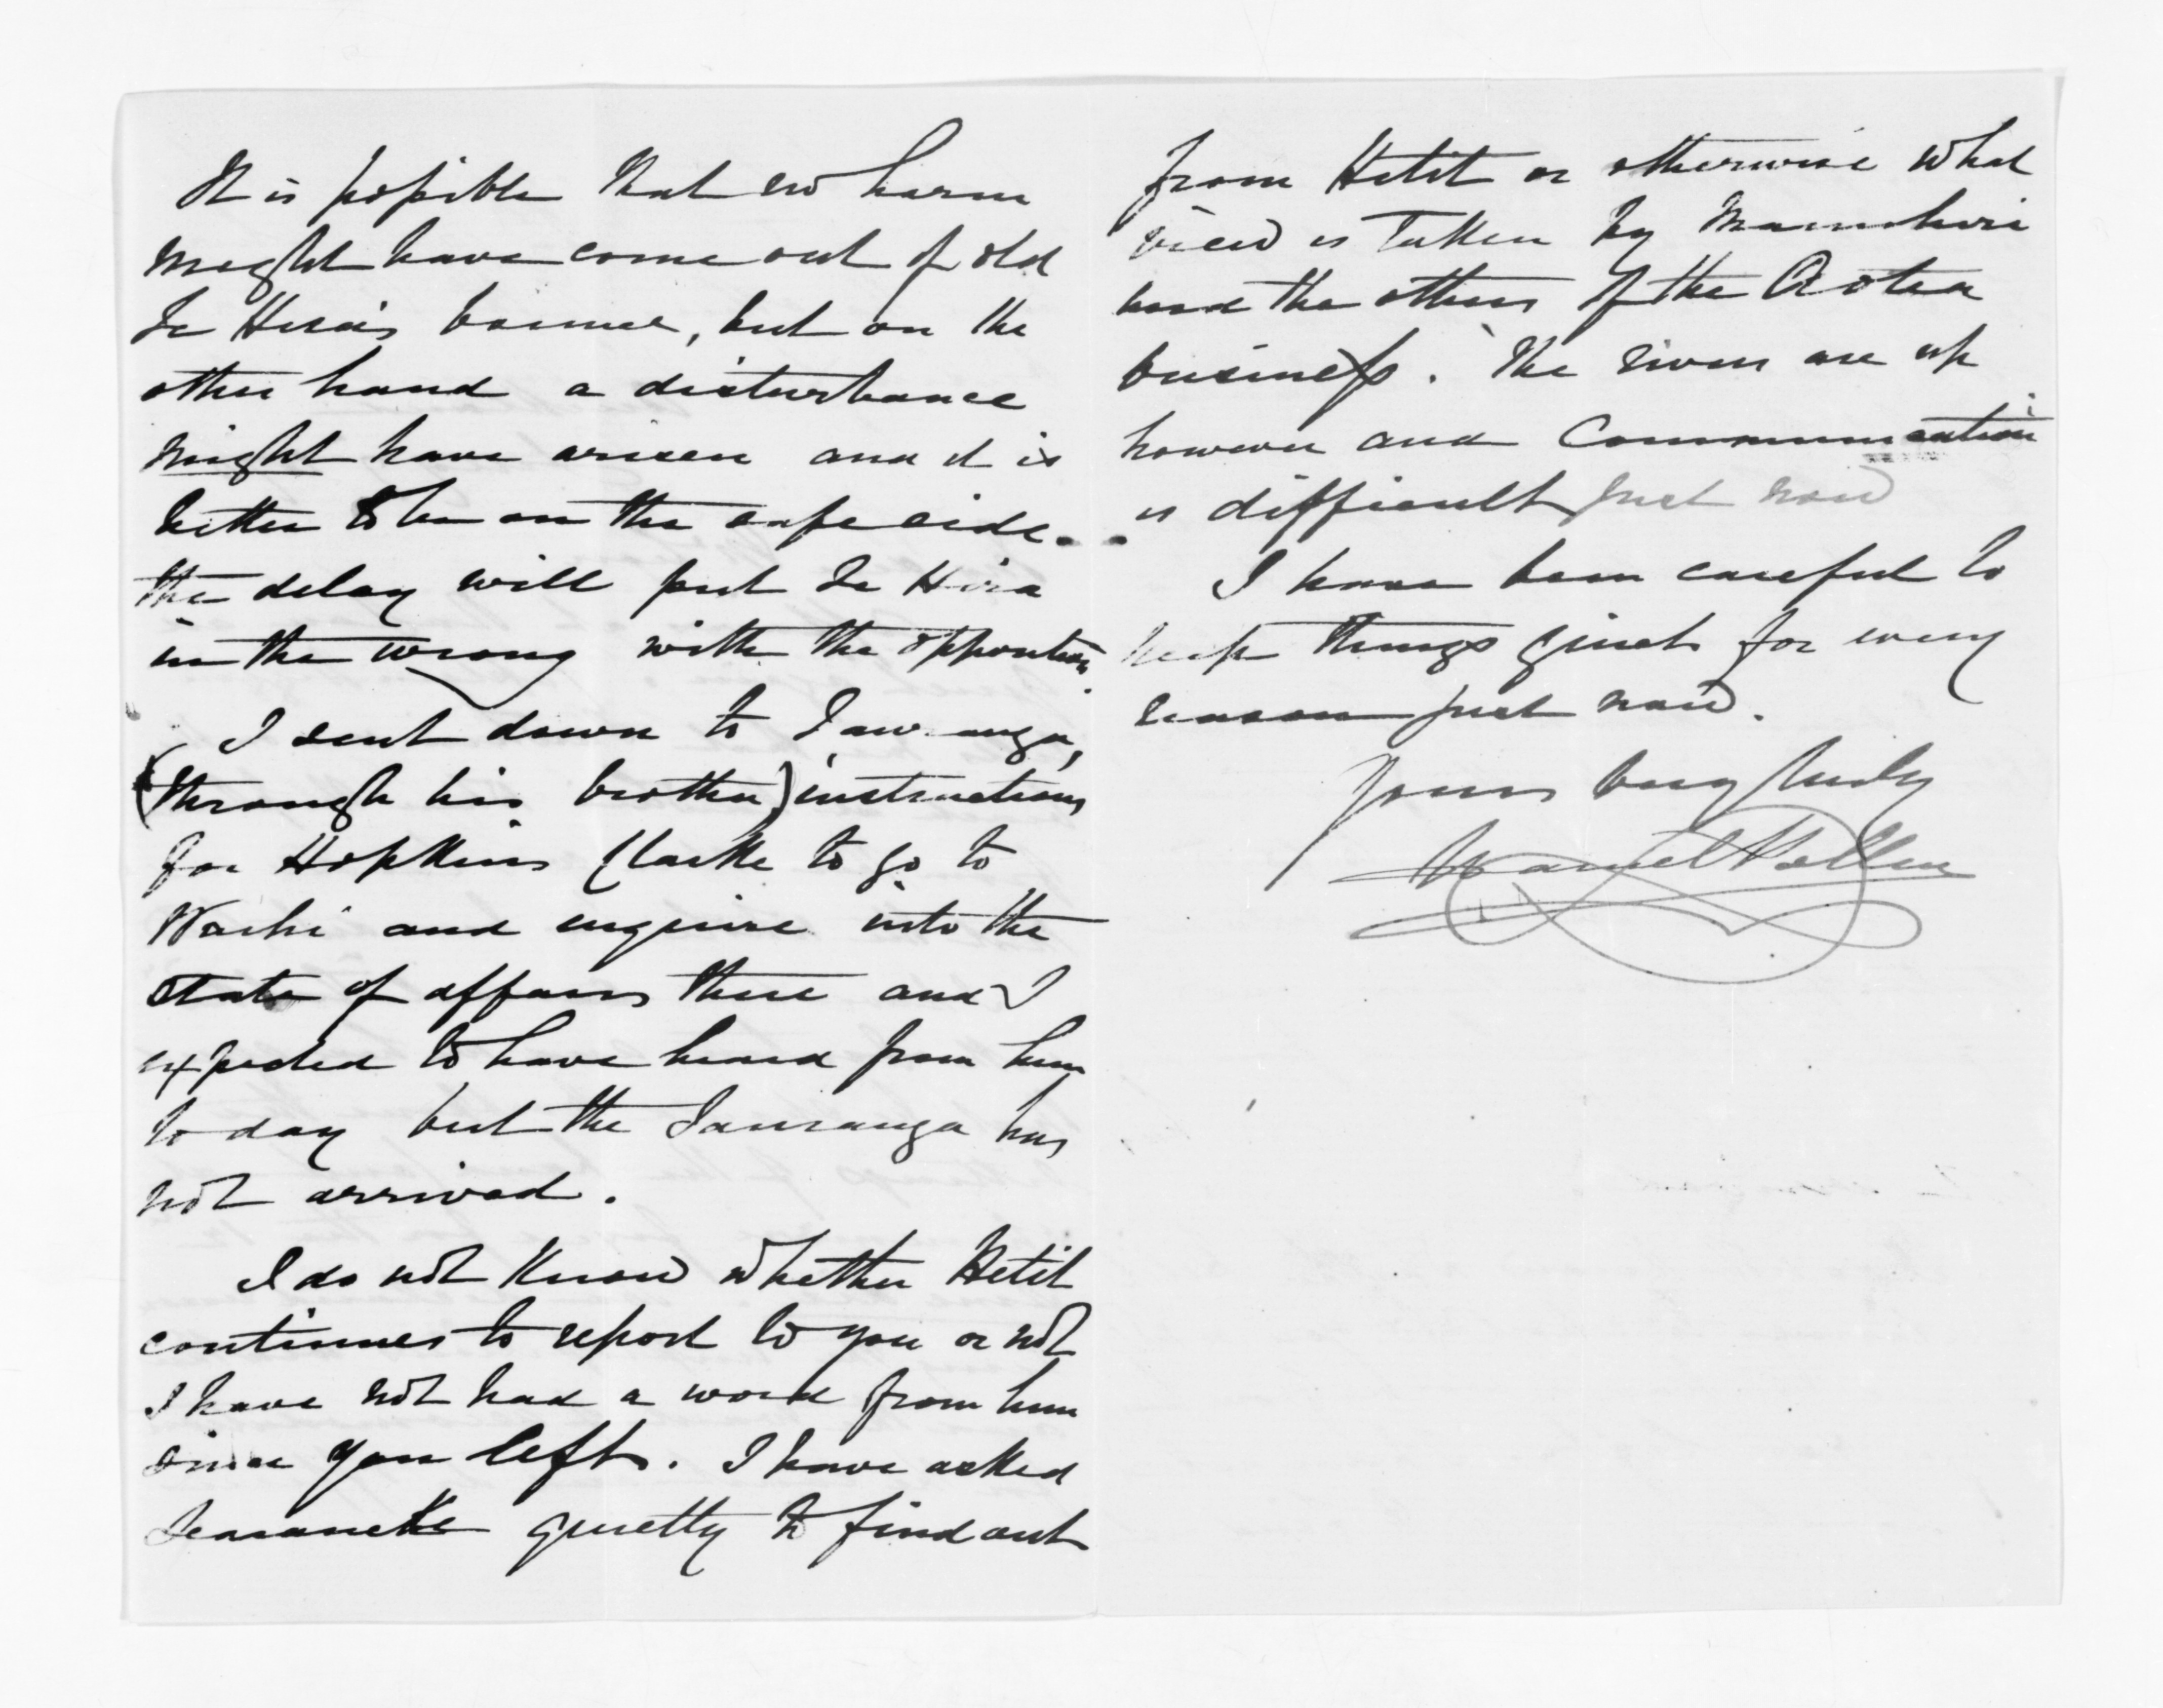 It is possible that no harm
might have come out of old
Te Hira's bounce, but on the
other hand a disturbance
might have arisen and it is
better to be on the safe side.
the delay will put Te Hira
in the wrong with the opposition.
I sent down to Tauranga,
(through his brother) instructions
for Hopkins Clarke to go to
Waihi and enquire into the
state of affairs there and I
expected to have heard from him
to day but the Tauranga has
not arrived.
I do not know whether Hetit
continues to report to you or not
I have not had a word from him
since you left. I have asked
Searancke quietly to find out
from Hetit or otherwise what
view is taken by Manuhiri
and the others of the Aotea
business. The rivers are up
however and communication
is difficult just now
I have been careful to
keep things quiet for every
reason just now.
Yours very truly
Daniel Pollen